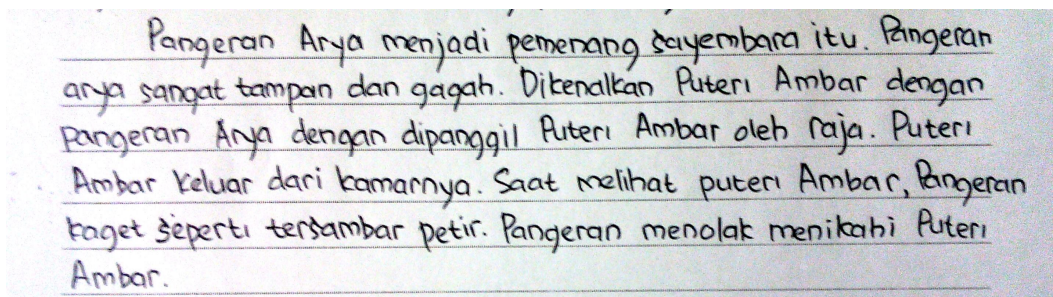 Pangeran Arya menjadi pemenang sayembara itu. Pangeran
arya sangat tampan dan gagah. Dikenalkan Puteri Ambar dengan
pangeran Arya dengan dipanggil Puteri Ambar oleh raja. Puteri
Ambar keluar dari kamarnya. Saat melihat puteri Ambar, Pangeran
kaget seperti tersambar petir. Pangeran menolak menikahi Puteri
Ambar.